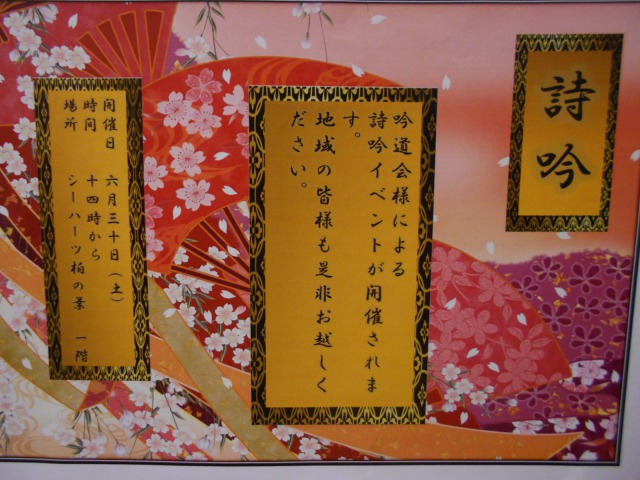 詩吟
吟道会様による
詩吟イベントが開催されま
す。
地域の皆様も是非お越しく
ださい。
開催日　六月三十日（土）
時間　十四時から
場所　シーハーツ柏の葉　一階